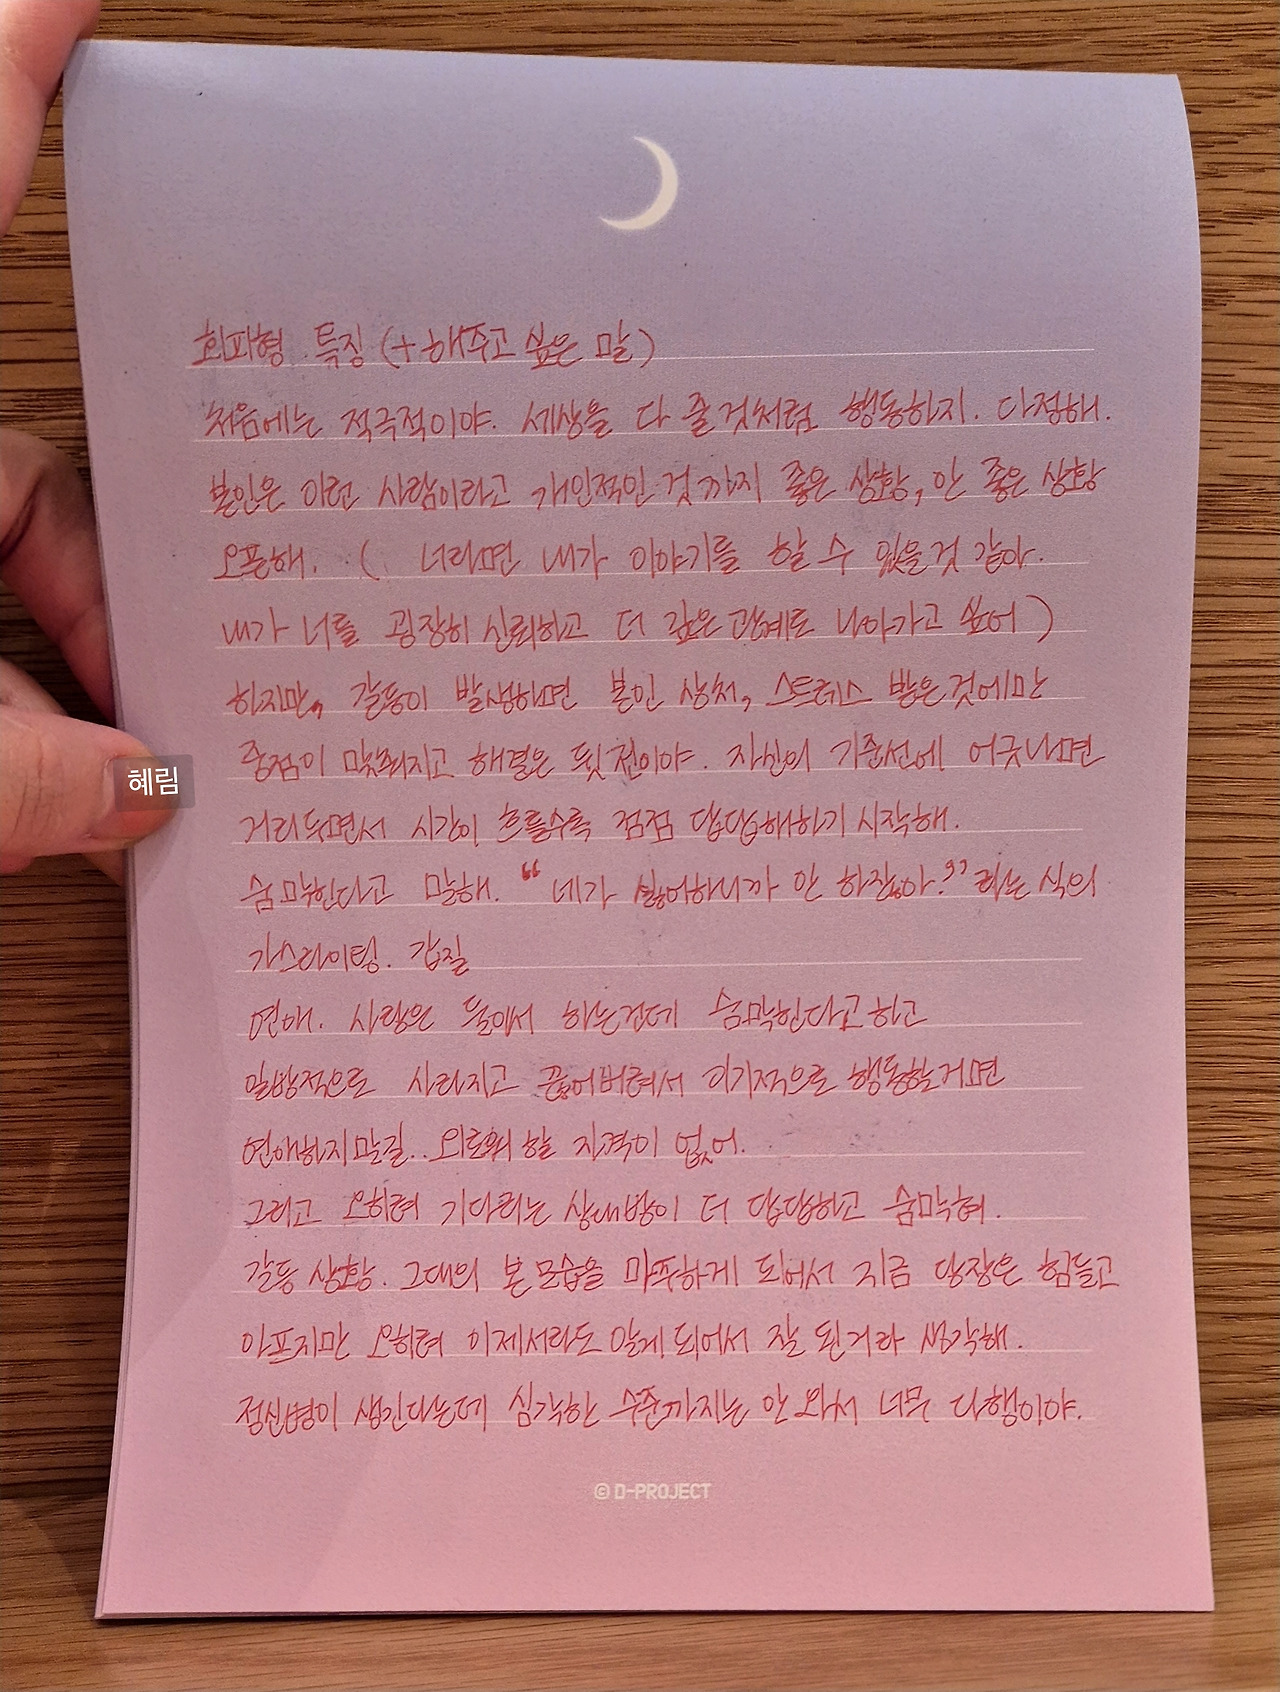 회피형 특징 (+ 해주고 싶은 말)
처음에는 적극적이야. 세상을 다 줄것처럼 행동하지. 다정해.
본인은 이런 사람이라고 개인적인 것까지 좋은 상황, 안 좋은 상황
오픈해. ( 너라면 내가 이야기를 할 수 있을것 같아.
내가 너를 굉장히 신뢰하고 더 깊은 관계로 나아가고 싶어 )
하지만, 갈등이 발생하면 본인 상처, 스트레스 받은것에만
중점이 맞춰지고 해결은 뒷전이야. 자신의 기준선에 어긋나면
거리두면서 시간이 흐를수록 점점 답답해하기 시작해.
숨막힌다고 말해. “ 네가 싫어하니까 안 하잖아?” 라는 식의
가스라이팅. 갑질
혜림
연애. 사랑은 둘이서 하는건데 숨막힌다고하고
일방적으로 사라지고 끊어버려서 이기적으로 행동할거면
연애하지말길.. 외로워 할 자격이 없어.
그리고 오히려 기다리는 상대방이 더 답답하고 숨막혀.
갈등 상황. 그대의 본모습을 마주하게 되어서 지금 당장은 힘들고
아프지만 오히려 이제서라도 알게 되어서 잘 된거라 생각해.
정신병이 생긴다는데 심각한 수준까지는 안 와서 너무 다행이야.
© D-PROJECT